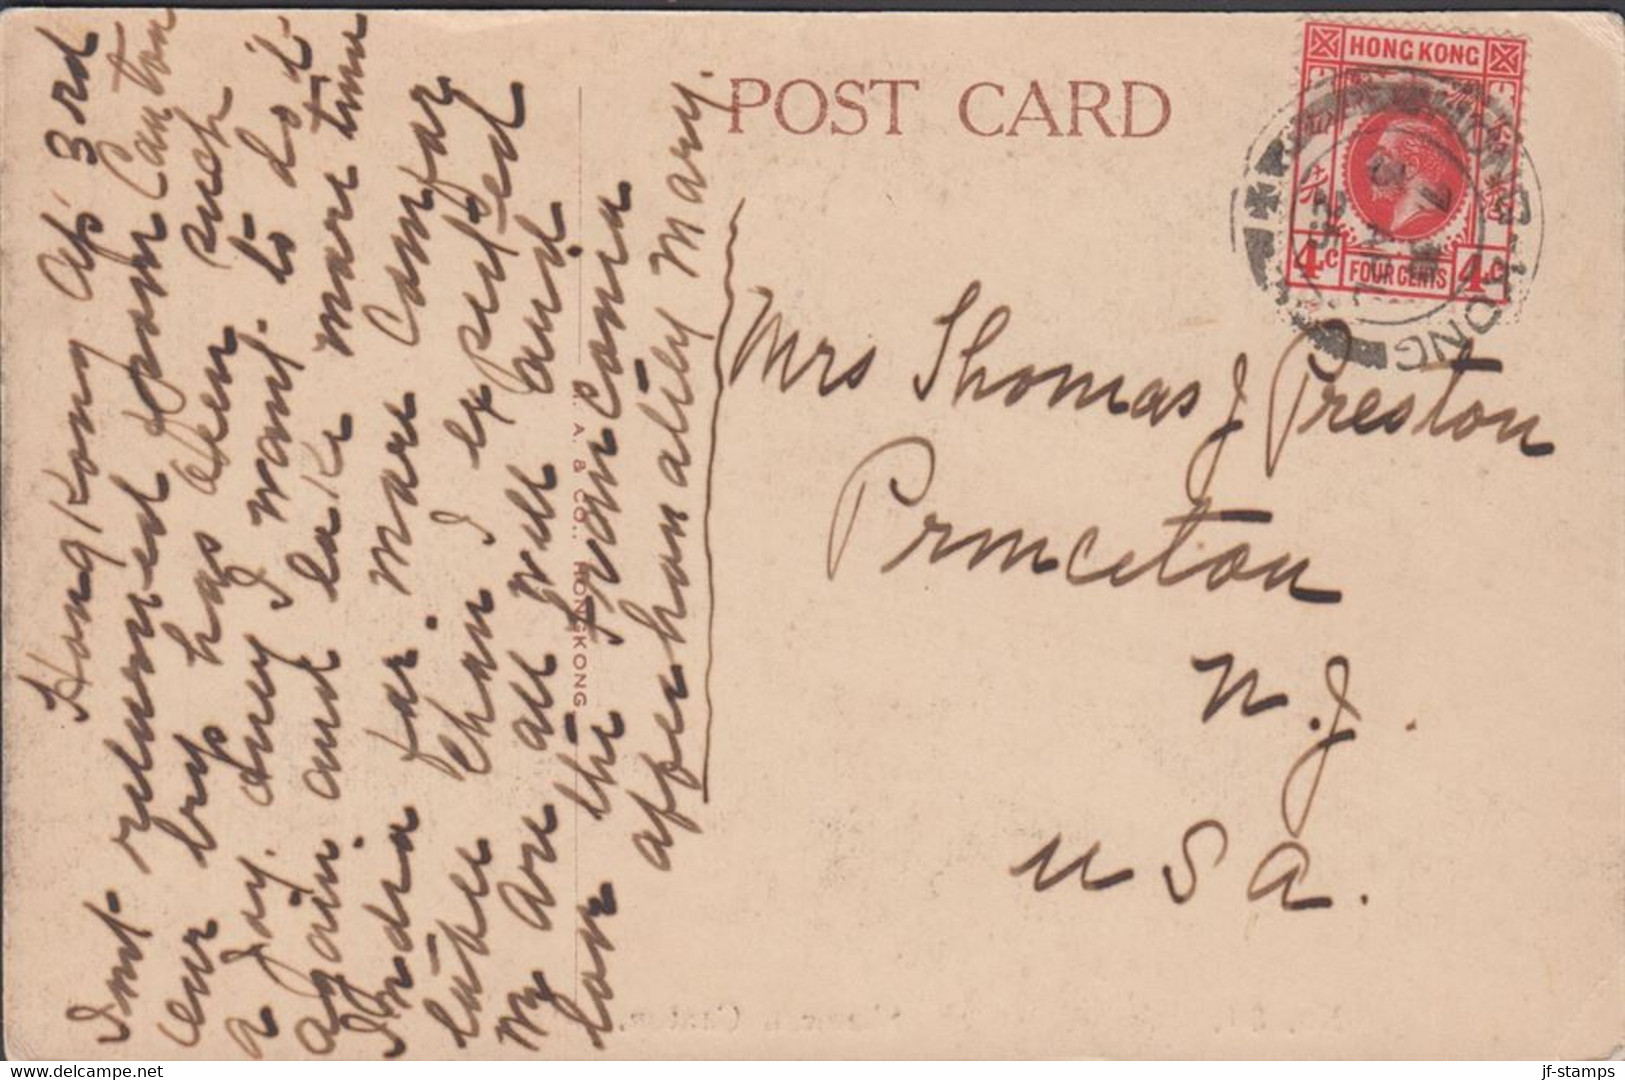 POST CARD
HONG KONG
4c FOUR CENTS 4c
HONG-KONG
7 AP
25
Hong Kong Ap 3rd
Just returned from Canton
our trip has been such
a joy. Only I want to do it
again and take more time
India far more comfor
table than I expected
We are all well and
love the Franconia
affectionately Mary.
M. A. & CO., HONGKONG
Mrs Thomas J Preston
Princeton
N.J.
U S A.
delcampe.net
jf-stamps